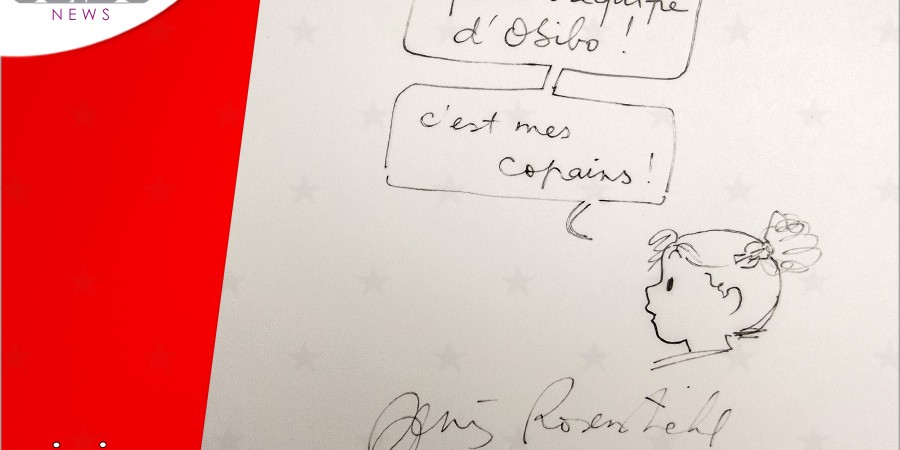 NEWS
l'équipe
d'Osibo !
c'est mes
copains !
Agnès Rosenstiehl